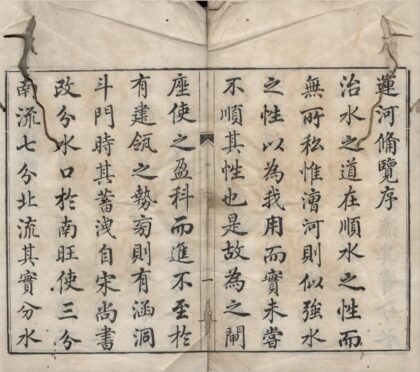 運河俻覽序
治水之道在順水之性而
無所私惟漕河則似強水
之性以為我用而實未嘗
不順其性也是故為之閘
一
座使之盈科而進不至於
有建瓴之勢旁則有涵洞
斗門時其蓄洩自宋尚書
改分水口於南旺使三分
南流七分北流其實分水